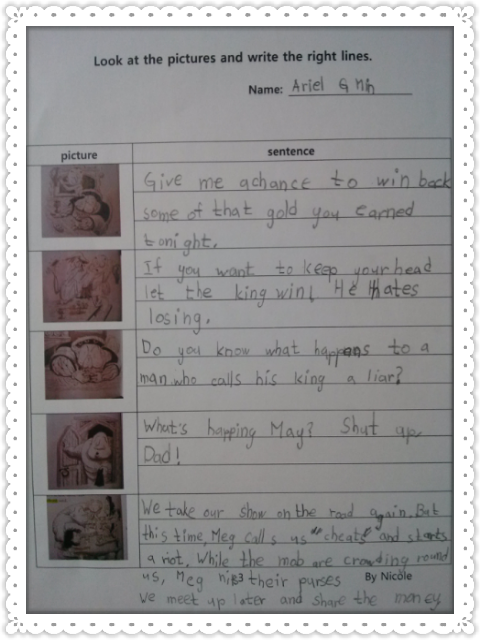 Look at the pictures and write the right lines.
Name: Ariel G Min
picture sentence
Give me achance to win back
some of that gold you earned
tonight.
If you want to keep your head
let the king win! He hates
losing.
Do you know what happens to a
man who calls his king a liar?
What's happing May? Shut up
Dad!
We take our show on the road again. But
this time, Meg calls us "cheats" and starts
a riot. While the mob are crowding round
us, Meg their purses By Nicole
We meet up later and share the money